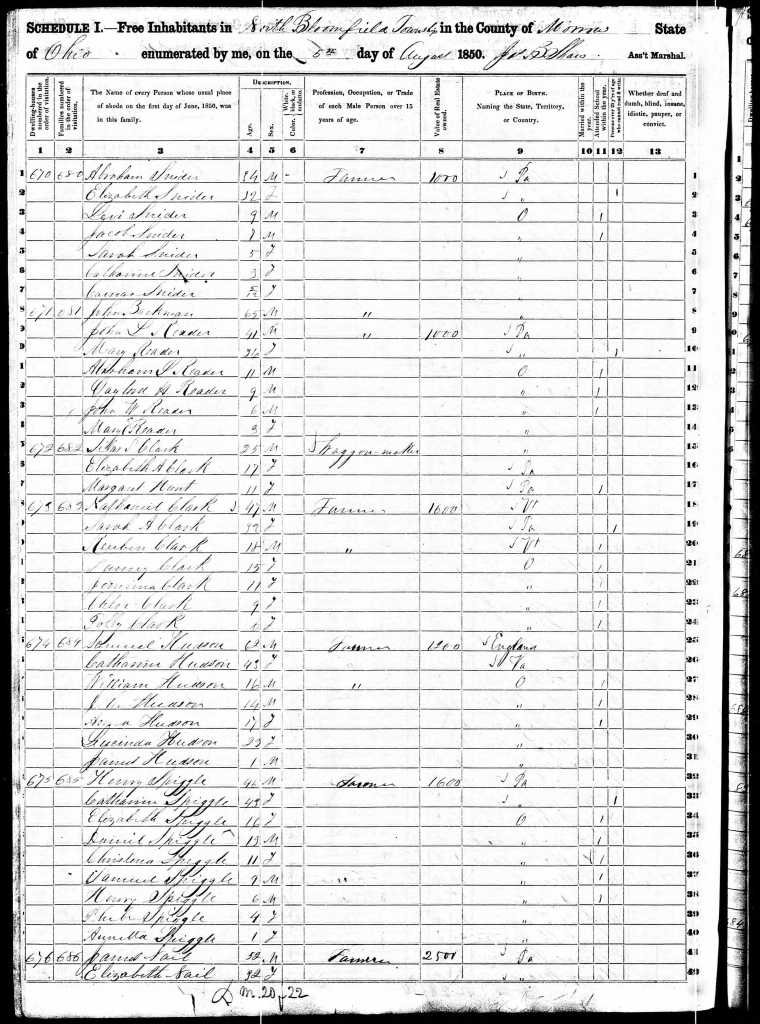 SCHEDULE I.—Free Inhabitants in North Bloomfield Township in the County of Morrow State
of Ohio enumerated by me, on the 5th day of August 1850. Ass't Marshal.
DESCRIPTION.
Dwelling-houses numbered in the order of visitation.
Families numbered in the order of visitation.
The Name of every Person whose usual place of abode on the first day of June, 1850, was in this family.
Age.
Sex.
Color.
Profession, Occupation, or Trade of each Male Person over 15 years of age.
Value of Real Estate owned.
PLACE OF BIRTH. Naming the State, Territory, or Country.
Married within the year.
Attended School within the year.
Persons over 20 y'rs of age who cannot read & write.
Whether deaf and dumb, blind, insane, idiotic, pauper, or convict.
1 2 3 4 5 6 7 8 9 10 11 12 13
1 670 680 Abraham Snider M Farmer 1000 Pa 1
2 Elizabeth Snider 32 F " 1 2
3 Levi Snider 9 M O 1 3
4 Jacob Snider 7 M " 1 4
5 Sarah Snider 5 F " 5
6 Catharine Snider 3 F " 6
7 Snider F " 7
8 671 681 John 65 M " " 8
9 John S. Reader 41 M " 1000 Pa 9
10 Mary Reader F " 1 10
11 Abraham Reader 11 M O 1 11
12 Reader 9 M " 1 12
13 John W Reader 6 M " 1 13
14 Mary Reader 3 F " 14
15 672 682 Clark 25 M Waggon-maker " 15
16 Elizabeth A Clark 17 F Pa 16
17 Margaret Hunt 11 F Pa 1 17
18 673 683 Nathaniel Clark 47 M Farmer 1600 Vt 18
19 Sarah A Clark 32 F Pa 1 19
20 Reuben Clark 18 M " Vt 1 20
21 Fanny Clark 15 F O 1 21
22 Clark 11 F " 1 22
23 Chloe Clark 9 F " 1 23
24 Polly Clark F " 1 24
25 674 684 Samuel Hudson 62 M Farmer 1200 England 25
26 Catharine Hudson 43 F Va 26
27 William Hudson 16 M " O 1 27
28 Hudson 14 M " 1 28
29 Hudson 17 F " 1 29
30 Lucinda Hudson 22 F " 30
31 James Hudson 1 M " 31
32 675 685 Henry Spiggle 46 M Farmer 1600 Pa 32
33 Catharine Spiggle 43 F " 1 33
34 Elizabeth Spiggle 16 F O 34
35 Daniel Spiggle 13 M " 1 35
36 Christena Spiggle 11 F " 1 36
37 Samuel Spiggle 9 M " " 1 37
38 Henry Spiggle 6 M " 1 38
39 Spiggle 4 F " 39
40 Spiggle 1 F " 40
41 676 686 James Nail 32 M Farmer 2500 Pa 41
42 Elizabeth Nail 32 F " 42
M. 20 F 22